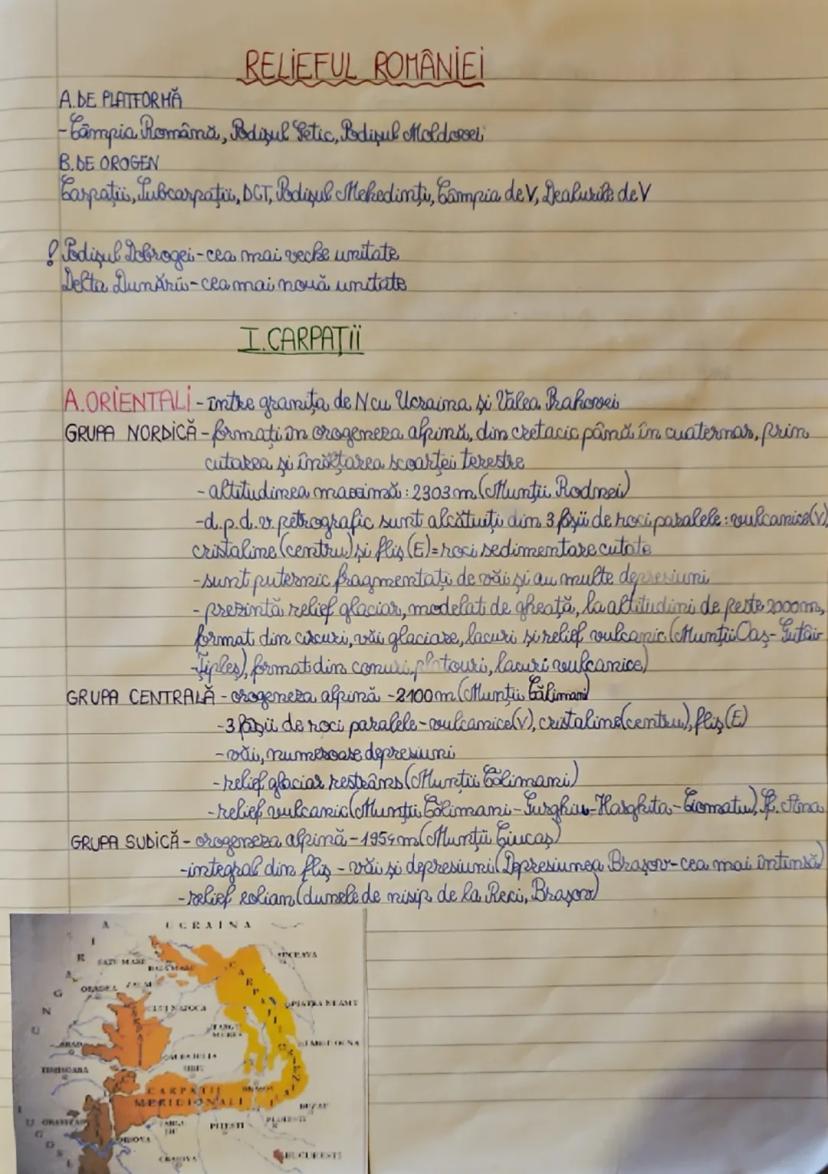 RELIEFUL ROMÂNIEI
A. DE PLATFORMĂ
-Câmpia Română, Podișul Getic, Podișul Moldovei
B. DE OROGEN
Carpații, Subcarpații, DCT, Podișul Mehedinți, Câmpia de V, Dealurile de V
! Podișul Dobrogei-cea mai veche unitate
Delta Dunării-cea mai nouă unitate
I. CARPAȚII
A. ORIENTALI - între granița de N cu Ucraina și Valea Prahovei
GRUPA NORDICĂ - formați în orogeneza alpină, din cretacic până în cuaternar, prin
cutarea și înălțarea scoarței terestre
- altitudinea maximă: 2303 m (Munții Rodnei)
-d.p.d.v. petrografic sunt alcătuiți din 3 fâșii de roci paralele: vulcanice(V)
cristaline (centru) și fliș (E)=roci sedimentare cutate
-sunt puternic fragmentați de văi și au multe depresiuni
- prezintă relief glaciar, modelat de gheață, la altitudini de peste 2000m,
format din circuri, văi glaciare, lacuri și relief vulcanic (Munții Oaș- Gutâi-
-Țibleș), format din conuri, platouri, lacuri vulcanice)
GRUPA CENTRALĂ - orogeneza alpină -2100m (Munții Călimani)
-3 fâșii de roci paralele-vulcanice(V), cristaline(centru), fliș(E)
-văi, numeroase depresiuni
-relief glaciar restrâns (Munții Călimani)
-relief vulcanic (Munții Călimani-Gurghiu-Harghita-Ciomatu), Sf. Ana
GRUPA SUDICĂ - orogeneza alpină - 1954m (Munții Ciucaș)
-integral din fliș - văi și depresiuni (Depresiunea Brașov-cea mai întinsă)
-relief eolian (dunele de nisip de la Reci, Brașov)
UCRAINA
SUCEAVA
SATU MARE
BAIA MARE
ORADEA
ZALAU
CLUJ NAPOCA
PIATRA NEAMT
TARGU
MURES
TARGU OCNA
ARAD
ALBA IULIA
SIBIU
TIMISOARA
BRASOV
CARPATII
MERIDIONALI
BUZAU
PLOIESTI
TARGU
JIU
PITESTI
ORSOVA
CRAIOVA
BUCURESTI